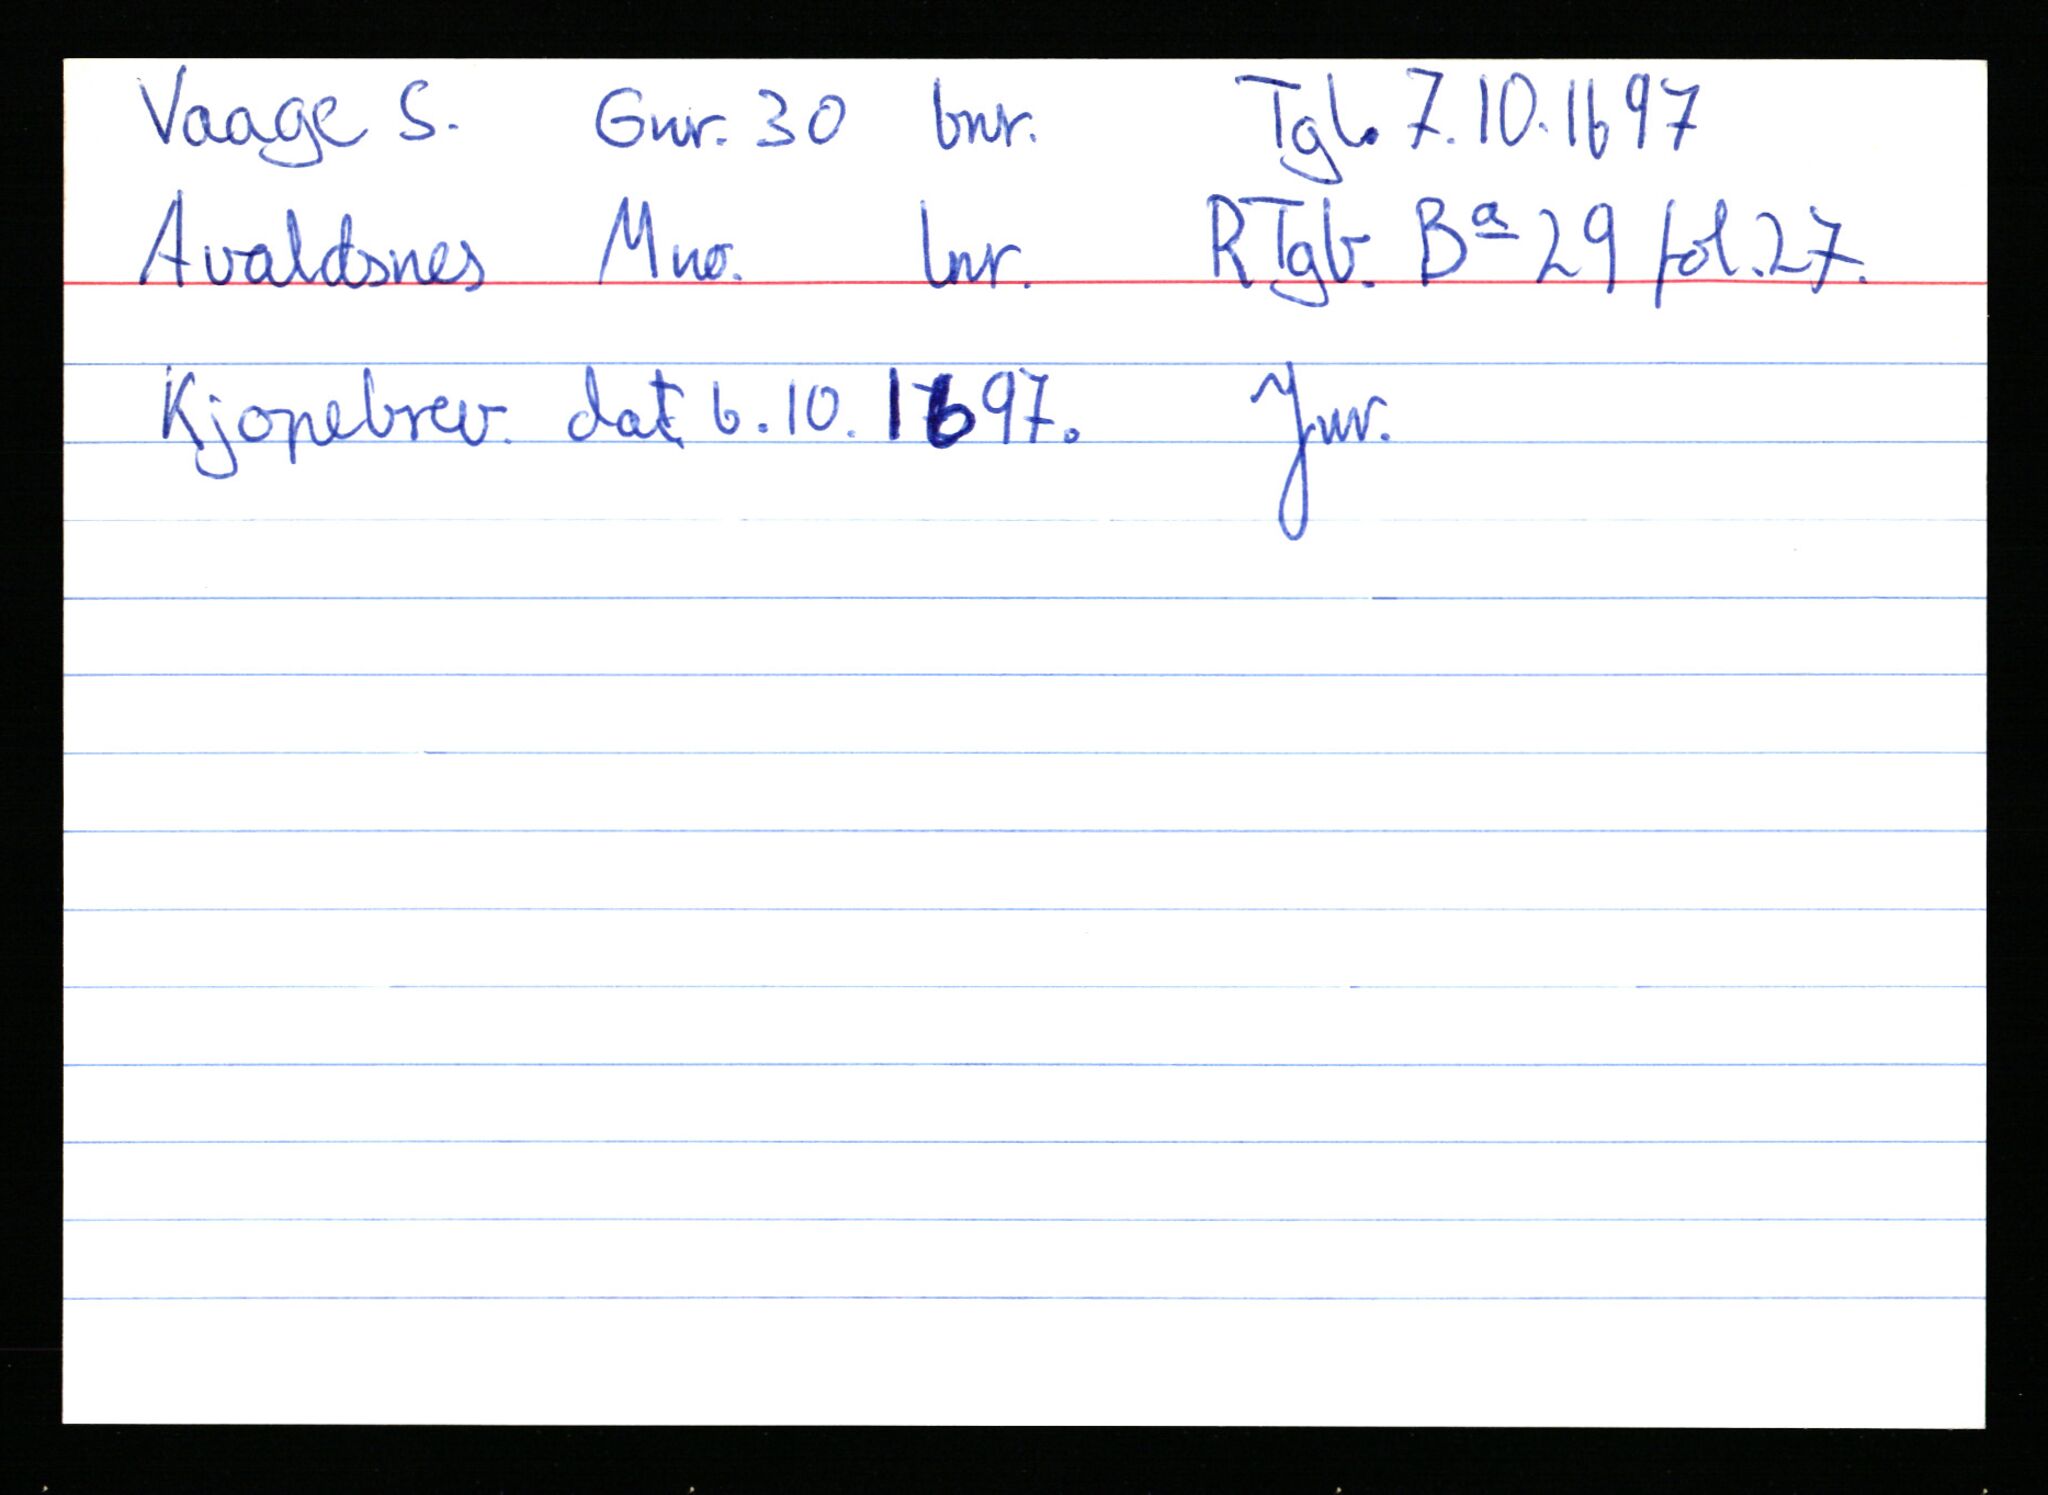 Vaage S. Gnr. 30 bnr. Tgl. 7.10.1697
Avaldsnes Mno. lnr. RTgb. Bª 29 fol. 27.
Kjopebrev. dat 6.10. 1697. Jnr.